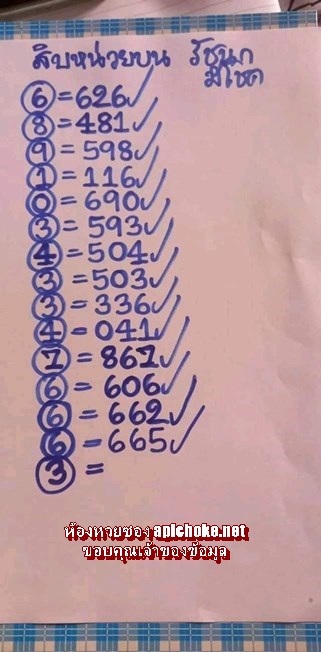 สิบหน่วยบน รัชนก
มีโชค
6 = 626✓
8 = 481✓
9 = 598✓
1 = 116✓
0 = 690✓
3 = 593✓
4 = 504✓
3 = 503✓
3 = 336✓
4 = 041✓
7 = 867✓
6 = 606✓
6 = 662✓
6 = 665✓
3 =
ห้องหวยซอง apichoke.net
ขอบคุณเจ้าของข้อมูล